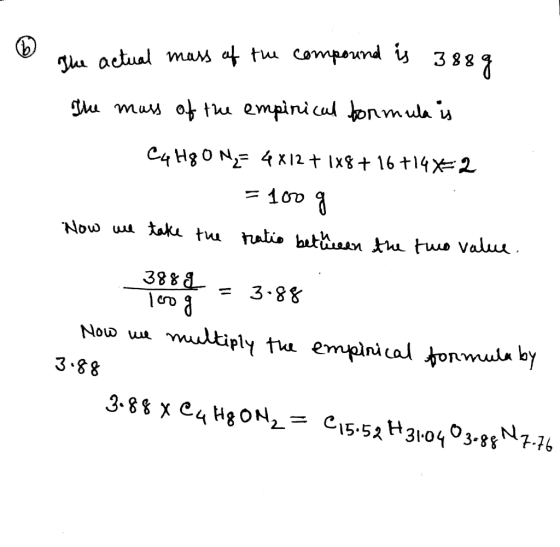 ⓑ The actual mass of the compound is 388 g
The mass of the empirical formula is
C₄H₈ON₂ = 4×12 + 1×8 + 16 + 14×2
= 100 g
Now we take the ratio between the two value.
388 g / 100 g = 3.88
Now we multiply the empirical formula by
3.88
3.88 × C₄H₈ON₂ = C₁₅.₅₂ H₃₁.₀₄ O₃.₈₈ N₇.₇₆